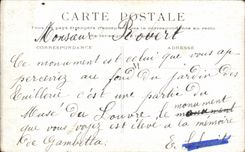 CARTE POSTALE
Monsieur Rovert
CORRESPONDANCE ADRESSE
Ce monument est celui que vous ap
perceviez au fond du jardin des
Tuillerie c'est une partie du
Musé du Louvre le monument
que vous voyez est élevé a la mémoire
de Gambetta. E.